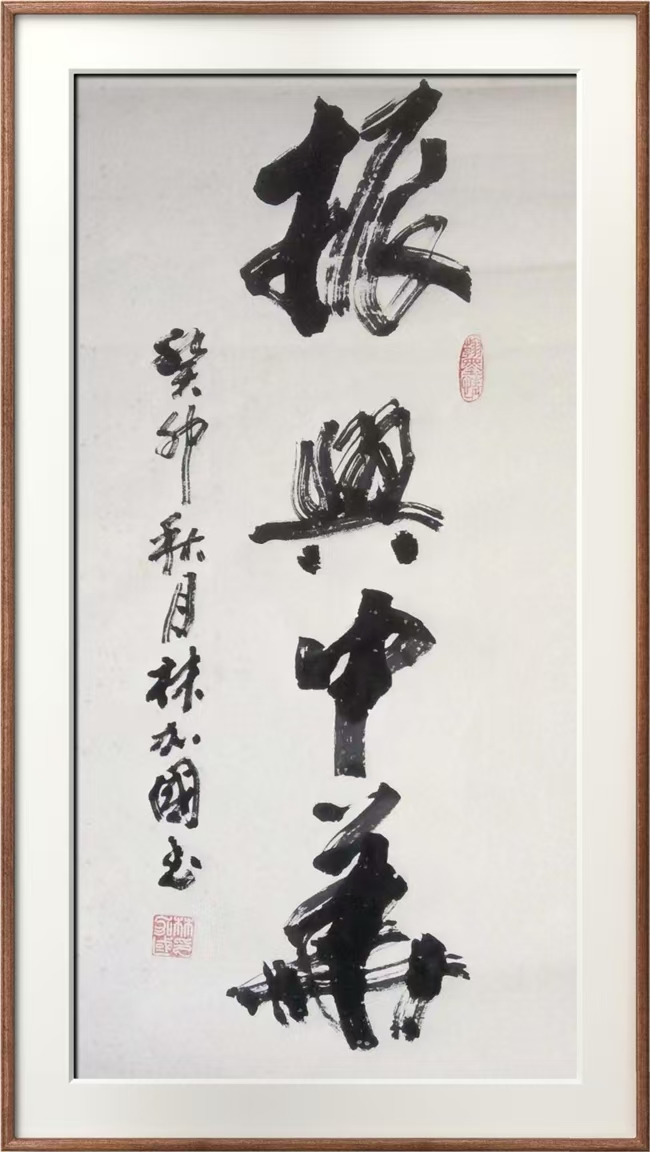 振興中華
癸卯秋月林加國書